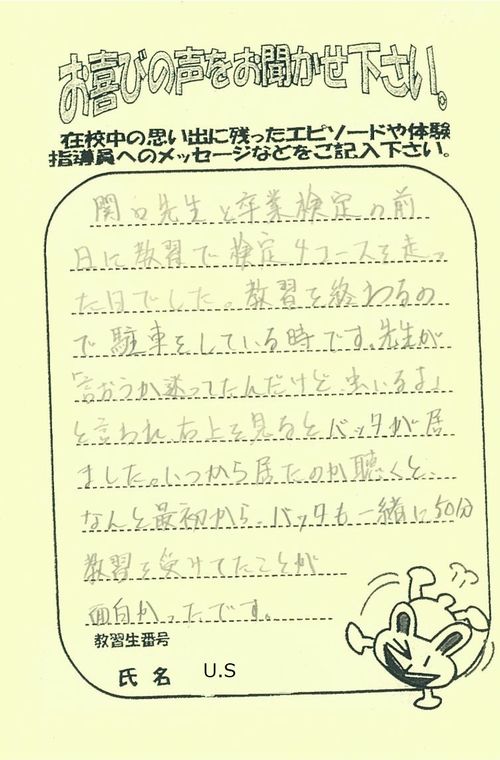 お喜びの声をお聞かせ下さい。
在校中の思い出に残ったエピソードや体験
指導員へのメッセージなどをご記入下さい。
関口先生と卒業検定の前
日に教習で検定4コースを走っ
た日でした。教習を終わるの
で駐車をしている時です。先生が
「言おうか迷ってたんだけど、虫いるよ」
と言われ、右上を見るとバッタが居
ました。いつから居たのか聴くと、
なんと最初から、バッタも一緒に50分
教習を受けてたことが
面白かったです。
教習生番号
氏名 U.S